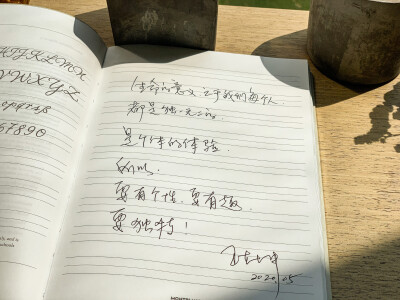 HIJKLMX
VWXYZ
67890
生命的意义 在于我们每个人
都是独一无二的
是个体的体验.
所以.
要有个性.要有趣.
要独特!
2020.05